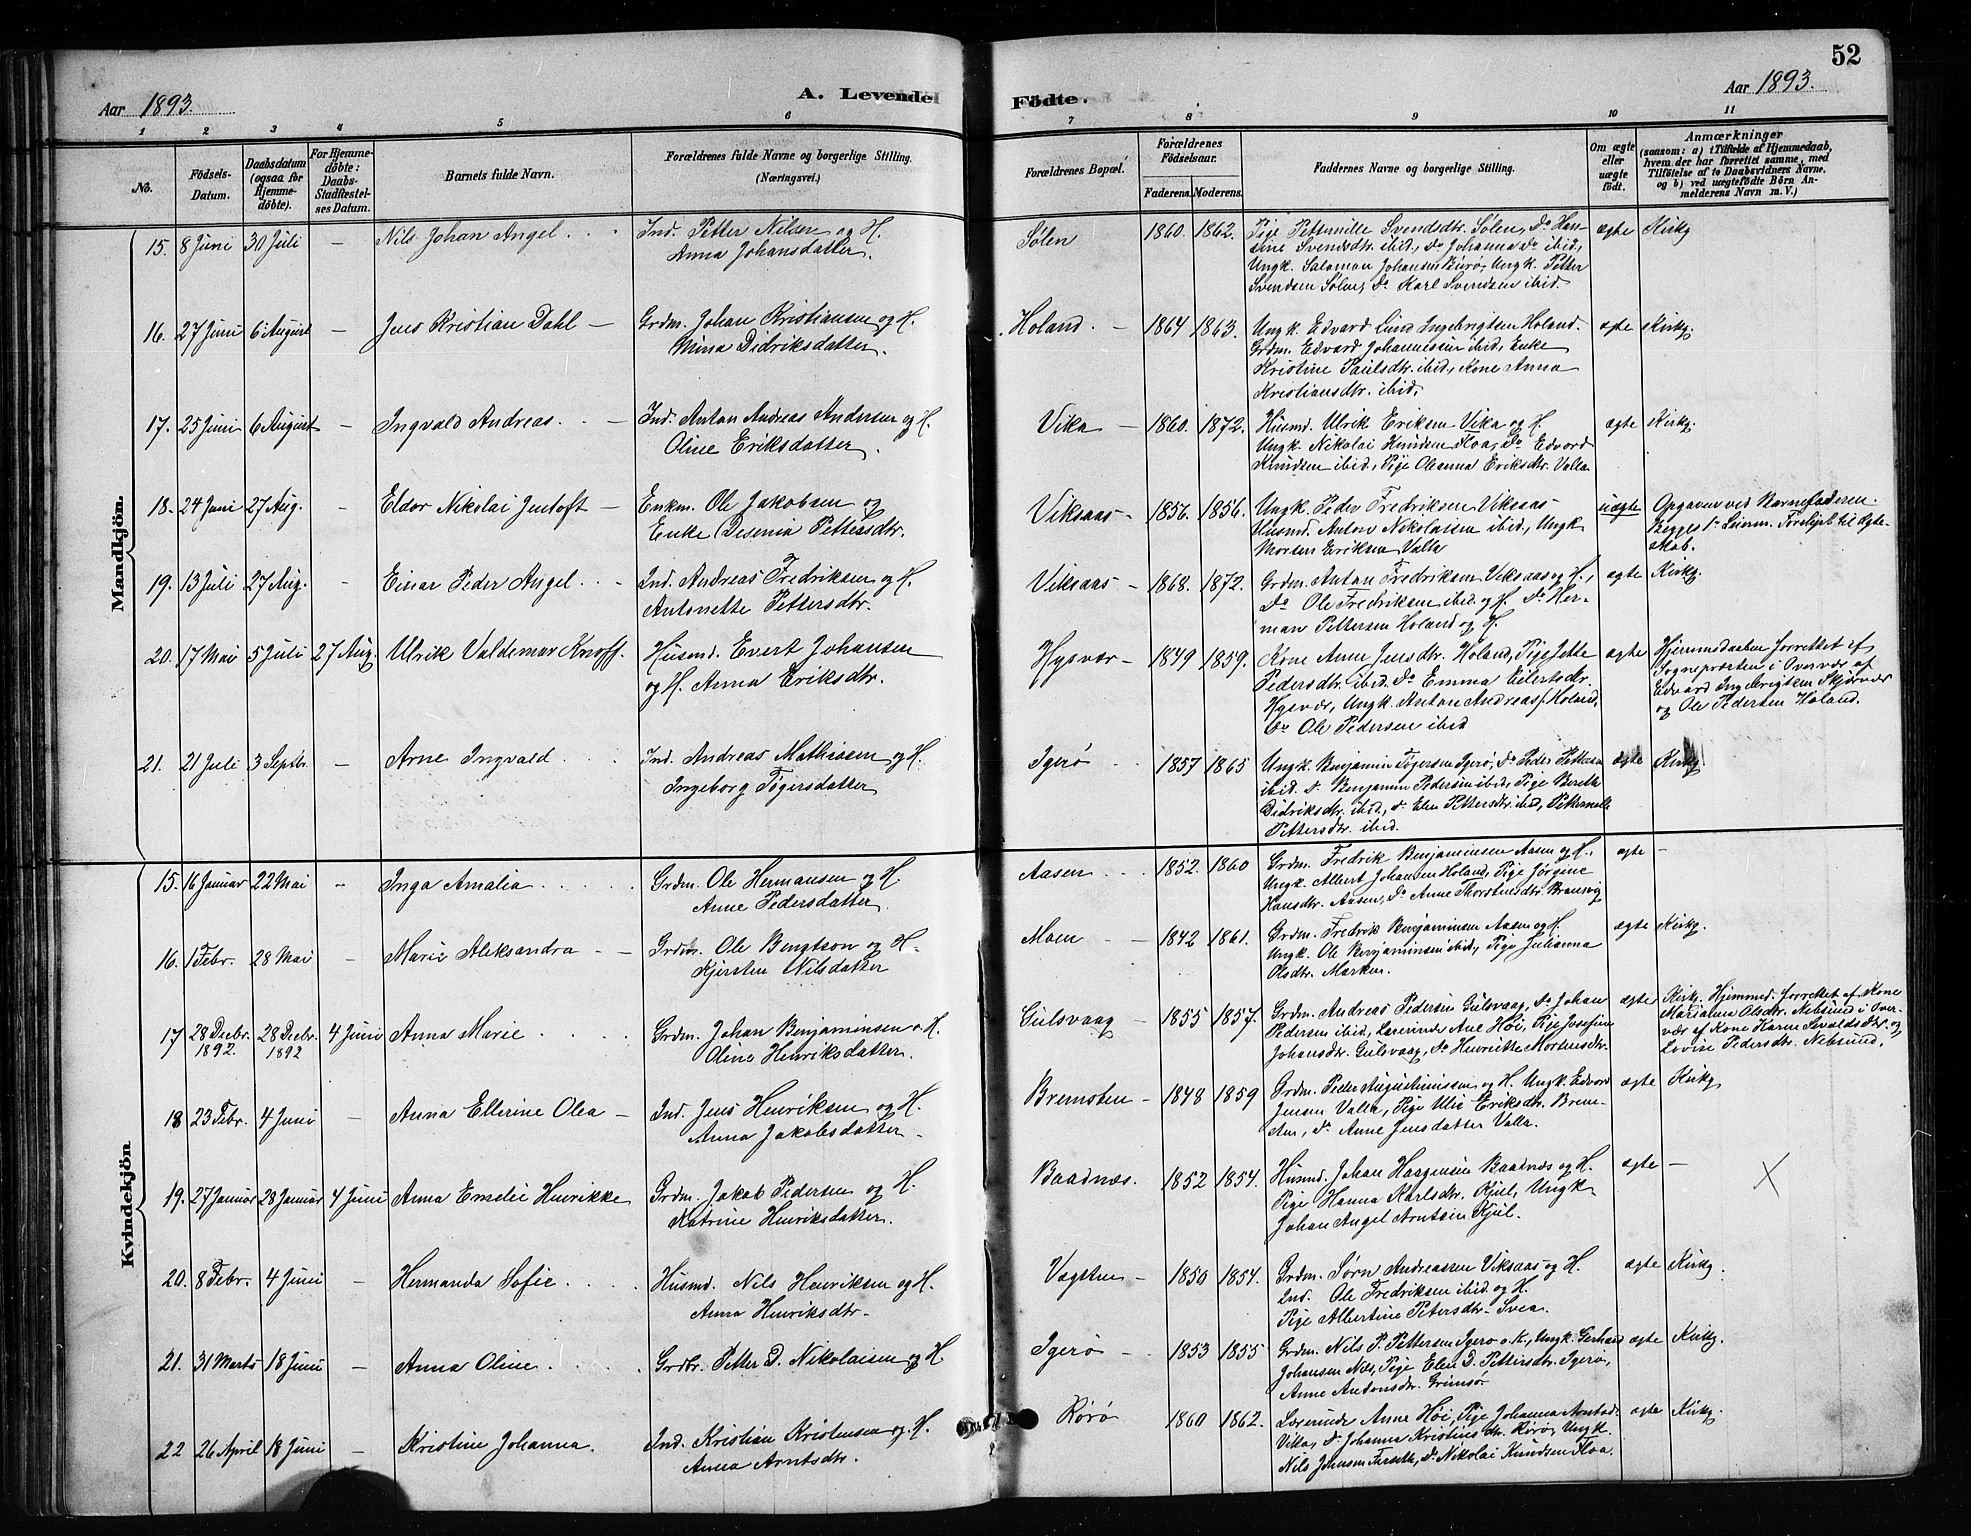 52
Aar 1893.
A. Levende Födte.
Aar 1893.
1 2 3 4 5 6 7 8 9 10 11
No.
Födsels-Datum.
Daabsdatum (ogsaa for Hjemme-döbte).
For Hjemme-döbte: Daabs-Stadfæstel-ses Datum.
Barnets fulde Navn.
Forældrenes fulde Navne og borgerlige Stilling. (Næringsvei.)
Forældrenes Bopæl.
Forældrenes Födselsaar.
Faderens. Moderens.
Faddernes Navne og borgerlige Stilling.
Om ægte eller uægte födt.
Anmærkninger (saasom: a) i Tilfælde af Hjemmedaab, hvem der har forrettet samme, med Tilföielse af to Daabsvidners Navne, og b) ved uægtefödte Börn An-melderens Navn m. V.)
Mandkjön.
15. 8 Juni 30 Juli - Nils Johan Angel. Ind. Petter Nilsen og H.
Anna Johansdatter.
Sølen 1860. 1862. Pige Pettrnille Svendsdtr. Sølen, Do Han-
sine Svendsdtr. ibid., Do Johanna Do ibid,
Ungk. Salamon Johansen Burø, Ungk. Petter
Svendsen Sølen, Do Karl Svendsen ibid.
ægte Kirkg
16. 27 Juni 6 August - Jens Kristian Dahl - Grdm. Johan Kristiansen og H.
Mina Didriksdatter.
Holand. - 1864 1863. Ungk. Edvard Lund Ingebrigtsen Holand.
Grdm. Edvard Johannessen ibid, Enke
Kristine Paulsdtr. ibid, Kone Anna
Kristiansdtr. ibid.
ægte Kirkg.
17. 25 Juni 6 August - Ingvald Andreas. - Ind. Antan Andreas Andersen og H.
Oline Eriksdatter.
Vika - 1860. 1872. Husmd. Ulrik Eriksen Vika og H.
Ungk. Nikolai Knudsen Floa, Do Edvard
Knudsen ibid, Pige Oleanna Eriksdtr. Valla
ægte Kirkg.
18. 24 Juni 27 Aug. - Eldor Nikolai Jentoft - Enkem. Ole Jakobsen og
Enke Desenia Pettersdtr.
Viksaas - 1856. 1856. Ungk. Peder Fredriksen Viksaas
Husmd. Anton Nikolaisen ibid, Ungk
Morten Eriksen Valla
uægte Opgaven ved Barnefaderen.
Begges 1ste Leierm. Forelyst til Ægte-
skab.
19. 13 Juli 27 Aug. - Einar Peder Angel. - Ind. Andreas Fredriksen og H
Antonette Pettersdtr.
Viksaas - 1868. 1872. Grdm. Antan Fredriksen Viksaas og H,
Do Ole Fredriksen ibid og H. Do Her-
man Pettersen Holand og H.
ægte Kirkg.
20. 17 Mai 5 Juli 27 Aug. Ulrik Valdemar Knoff. Husmd. Evert Johansen
og H. Anna Eriksdtr.
Hysvær - 1849 1859. Kone Anne Jensdtr. Holand, Pige Jette
Pedersdtr. ibid. Do Emma Eilertsdtr.
Hysvær, Ungk. Antan Andreas Holand,
Do Ole Pedersen ibid
ægte Hjemmedaaben forrettet af
Sognepræsten i Overvær af
Edvard Ingebrigtsen Skjærvær
og Ole Pedersen Holand.
21. 21 Juli 3 Septbr. Arne Ingvald Ind. Andreas Mathisen og H.
Ingeborg Tøgersdatter
Igerø 1857 1865 Ungk. Benjamin Tøgersen Igerø, Do Peder Pettersen
ibid. Do Benjamin Pedersen ibid, Pige Berethe
Didriksdtr. ibid, Do Elen Pettersdtr. ibid, Petternelle
Pettersdtr. ibid.
ægte Kirkg
Kvindekjön
15. 16 Januar 22 Mai - Inga Amalia. Grdm. Ole Hermansen og H.
Anne Pedersdatter.
Aasen. 1852. 1860 Grdm. Fredrik Benjaminsen Aasen og H.
Ungk. Albert Johansen Holand, Pige Jørgine
Hansdtr. Aasen, Do Anne Thorstensdtr.
ægte -
16. 1 Febr. 28 Mai - Marie Aleksandra - Grdm. Ole Bengtson og H.
Kjersten Nilsdatter
Moen - 1842 1861. Grdm. Fredrik Benjaminsen Aasen og H.
Ungk. Ole Benjaminsen ibid, Pige Julianna
Olsdtr. Marken.
ægte Kirkg.
17 28 Decbr. 1892. 28 Decbr. 1892 4 Juni Anna Marie Grdm. Johan Benjaminsen o. H.
Oline Henriksdatter.
Gulsvaag - 1855 1857. Grdm. Andreas Pedersen Gulsvaag, Do Johan
Pedersen ibid, Lærerinde Ane Høi, Pige Josefine
Johansdtr. Gulsvaag, Do Henrikke Mortensdtr.
ægte Kirkg. Hjemmed. forrettet af Kone
Marianna Olsdtr. Nebsund i Over-
vær af Kone Karen Sevaldsdtr. og
Lovise Pedersdtr. Nebsund.
18 23 Febr. 4 Juni Anna Ellerine Olea - Ind. Jens Henriksen og H.
Anna Jakobsdatter.
Bremsten - 1848 1859 Grdm. Peder Augustinussen og H. Ungk. Edvard
Jensen Valla, Pige Uli Eriksdtr. Brem-
sten, Do Anne Jensdatter Valla.
ægte Kirkg
19. 27 Januar 28 Januar 4 Juni Anna Emelie Henrikke Grdm. Jakob Pedersen og H.
Katrine Henriksdatter.
Baadnæs. 1852 1854. Husmd. Johan Hagensen Baadnæs og H.
Pige Hanna Karlsdtr. Kjul, Ungk
Johan Angel Arntsen Kjul.
ægte - X
20. 8 Febr. 4 Juni - Hermanda Sofie. Husmd. Nils Henriksen og H.
Anna Henriksdtr.
Vægsten - 1850 1854. Grdm. Sørn Andreassen Viksaas og H.
Ind. Ole Fredriksen ibid og H.
Pige Albertine Petersdtr. Svea.
ægte Kirkg.
21. 31 Marts 18 Juni - Anna Oline. Grdbr. Petter D. Nikolaisen og H
Igerø - 1853 1855 Grdm. Nils P. Pettersen Igerø o. K., Ungk. Gerhard
Johansen Næs, Pige Elen D. Pettersdtr. Igerø,
Anne Antonsdtr. Grimsø.
ægte Kirkg.
22 26 April 18 Juni - Kristine Johanna. Ind. Kristian Kristensen og H.
Anna Arntsdtr.
Rørø 1860 1862. Lærerinde Anne Høi, Pige Johanna Arntsd.
Vika, Do Johanna Kristine dtr. Rørø, Ungk.
Nils Jensen Do Nikolai Knudsen Floa.
ægte Kirkg.